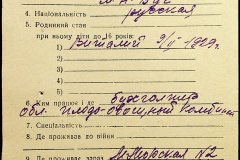 4. Національність русская
5. Родинний стан
при ньому діти до 16 років:
1) Виталий 9/II 1929 г.
2)
3)
4)
5)
6. Ким працює і де бухгалтер
обл. Плодо-овощный комбинат
7. Спеціальність
8. Де проживав до війни
9. Де проживає зараз М-Морская №2